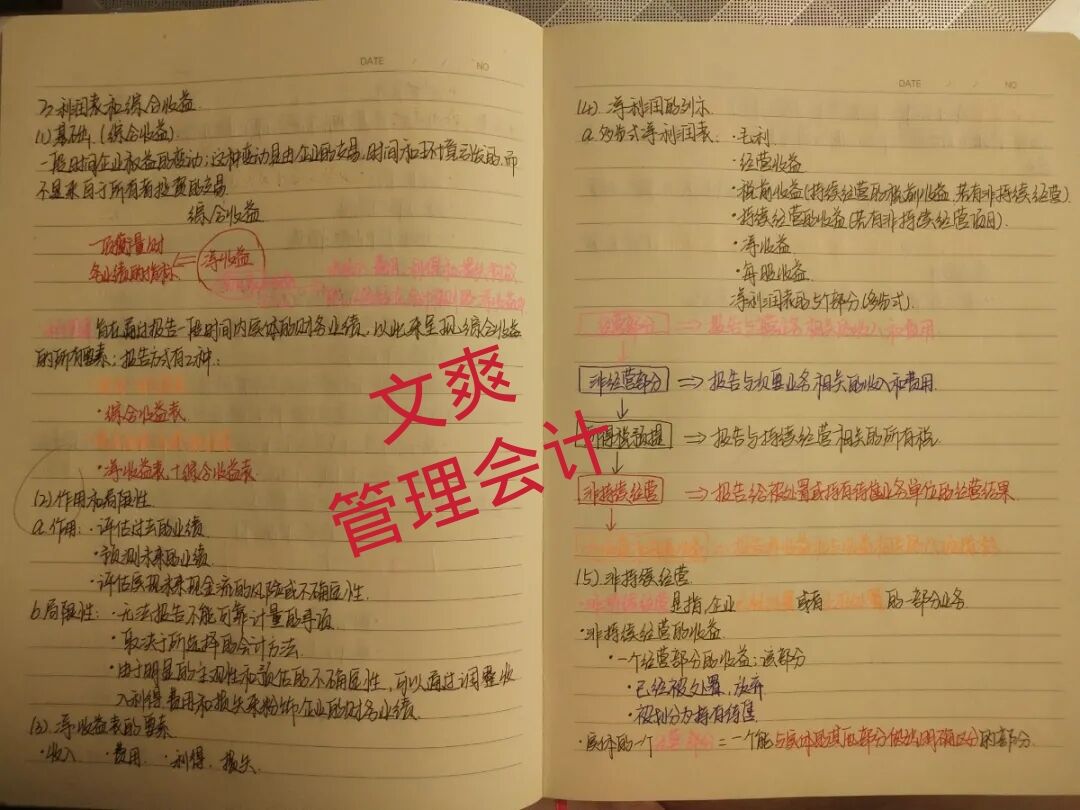 DATE / / NO
2、利润表和综合收益
(1)基础：(综合收益)
一段时间企业权益的变动；这种变动是由企业的交易、时间和环境引发的，而
不是来自于所有者投资的交易
综合收益
一项衡量财
务业绩的指标
净收益
旨在通过报告一段时间内实体的财务业绩，以此来呈现综合收益
的所有要素；报告方式有2种：
·综合收益表
·净收益表＋综合收益表
(2)作用和局限性
a.作用：·评估过去的业绩
·预测未来的业绩
·评估实现未来现金流的风险或不确定性
b.局限性：·无法报告不能可靠计量的事项
·取决于所选择的会计方法
·由于明显的主观性和预估的不确定性，可以通过调整收
入利得费用和损失来粉饰企业的财务业绩.
(3)净收益表的要素
·收入 ·费用 ·利得、损失
文爽
管理会计
DATE / / NO
(4).净利润的列示
a.多步式净利润表：·毛利
·经营收益
·税前收益(持续经营的税前收益，若有非持续经营)
·持续经营的收益(若有非持续经营项目)
·净收益
·每股收益
净利润表的5个部分(多步式)
经营部分 ⇒ 报告与主要业务相关的收入和费用
非经营部分 ⇒ 报告与次要业务相关的收入和费用
所得税预提 ⇒ 报告与持续经营相关的所有税
非持续经营 ⇒ 报告给被处置或持有待售业务单位的经营结果
(5).非持续经营
·非持续经营是指，企业 或者 的一部分业务
·非持续经营的收益
·一个经营部分的收益；该部分
·已经被处置，放弃
·被划分为持有待售
·实体的一个经营部分＝一个能与实体的其他部分做出明确区分的部分